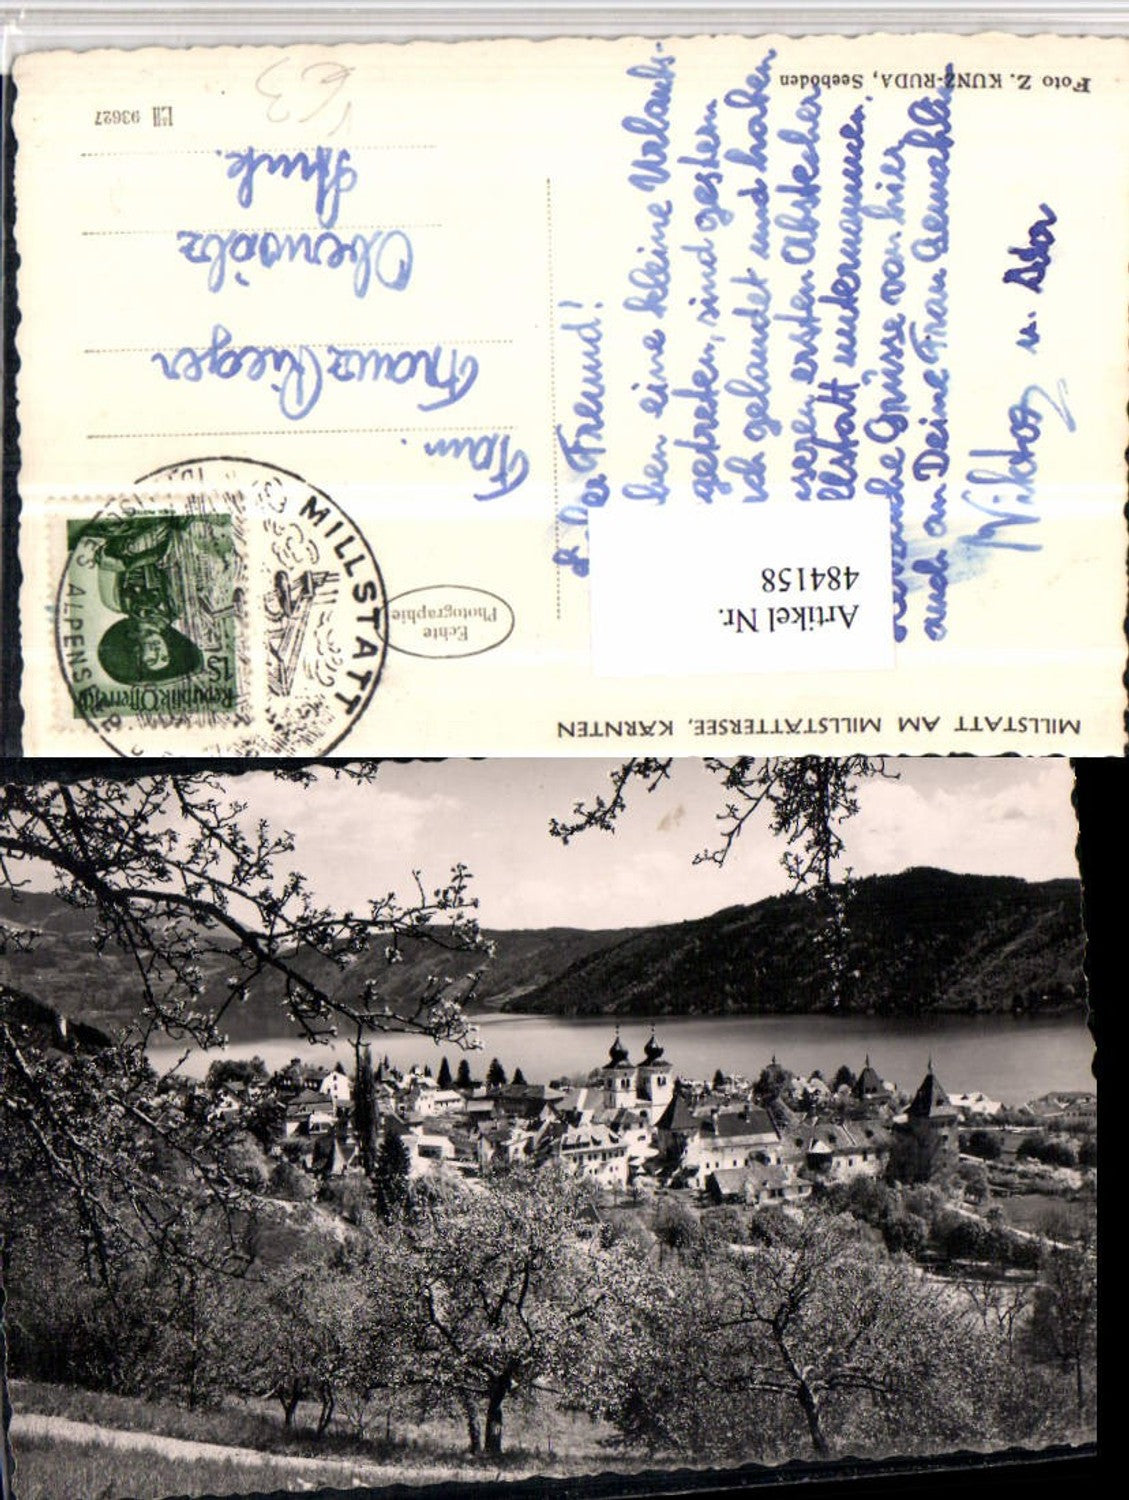 MILLSTATT AM MILLSTÄTTERSEE, KÄRNTEN
Artikel Nr.
484158
Freund!
ben eine kleine Urlaubs-
getreten, sind gestern
ich gelandet und haben
seren ersten Abstecher
llstatt unternommen.
Grüsse von hier
auch an Deine Frau Gemahlin
Viktor u.
Foto Z. KUNZ-RUDA, Seeboden
Echte
Photographie
Republik Österreich
1S
MILLSTATT
Fam.
Franz Rieger
Oberwölz
Stmk.
93627
63